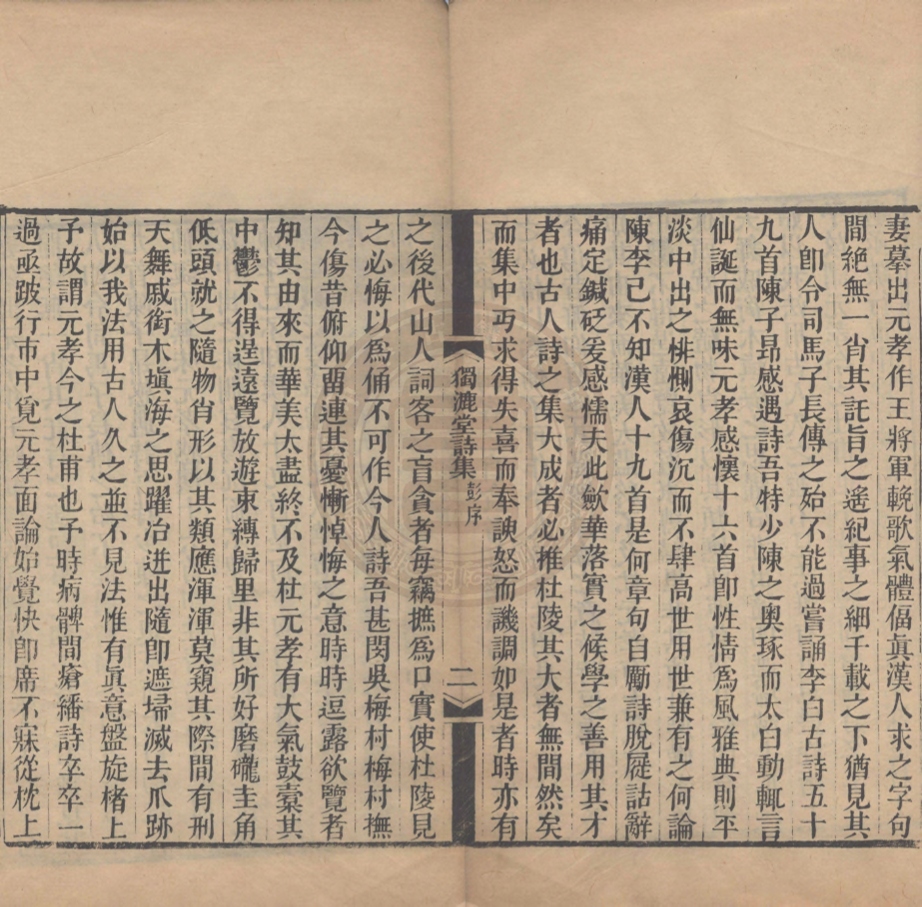 妻摹出元孝作王將軍輓歌氣體偪眞漢人求之字句
間絶無一肖其託旨之遙紀事之細千載之下猶見其
人卽令司馬子長傳之殆不能過嘗誦李白古詩五十
九首陳子昻感遇詩吾特少陳之奧琢而太白動輒言
仙誕而無味元孝感懷十六首卽性情爲風雅典則平
淡中出之悱惻哀傷沉而不肆高世用世兼有之何論
陳李已不知漢人十九首是何章句自勵詩脫屣詁辭
痛定鍼砭爰感懦夫此歛華落實之候學之善用其才
者也古人詩之集大成者必推杜陵其大者無間然矣
而集中丐求得失喜而奉諛怒而譏調如是者時亦有
獨漉堂詩集 彭序 二
之後代山人詞客之盲貪者每竊摭爲口實使杜陵見
之必悔以爲俑不可作今人詩吾甚閔吳梅村梅村撫
今傷昔俯仰畱連其憂慚悼悔之意時時逗露欲覽者
知其由來而華美太盡終不及杜元孝有大氣鼓橐其
中鬱不得逞遠覽放遊東縛歸里非其所好磨礲圭角
低頭就之隨物肖形以其類應渾渾莫窺其際間有刑
天舞戚銜木塡海之思躍冶迸出隨卽遮埽滅去爪跡
始以我法用古人久之並不見法惟有眞意盤旋楮上
予故謂元孝今之杜甫也予時病髀間瘡繙詩卒卒一
過亟跛行市中覓元孝面論始覺快卽席不寐從枕上